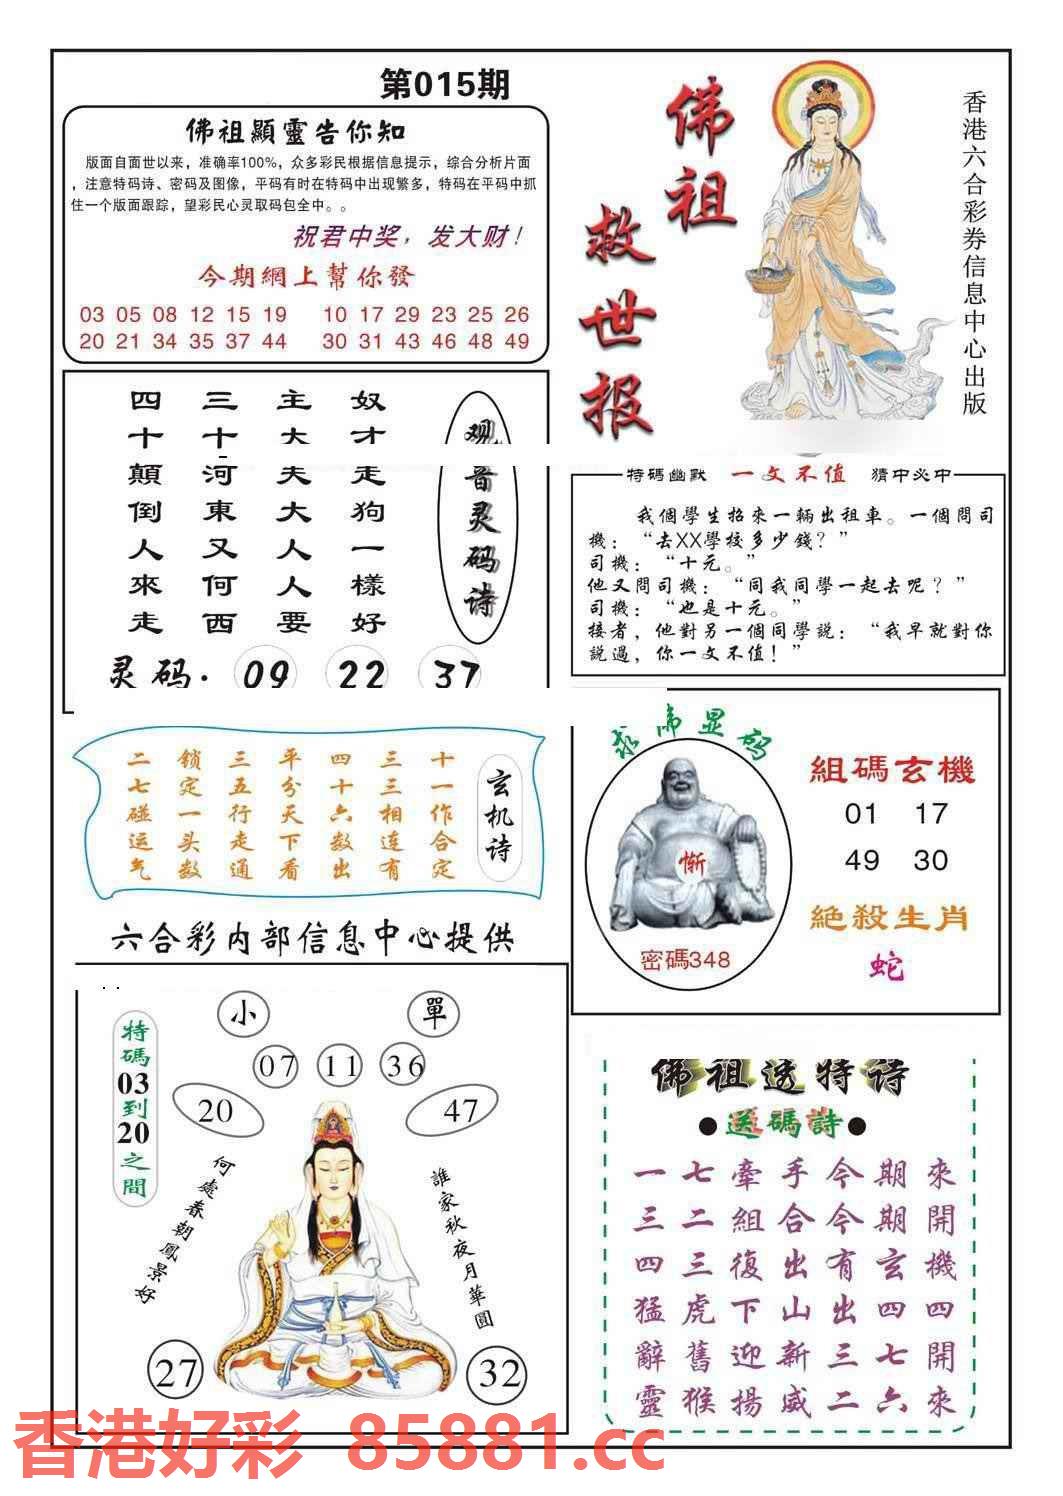 第015期
佛祖顯靈告你知
版面自面世以来，准确率100%，众多彩民根据信息提示，综合分析片面
，注意特码诗、密码及图像，平码有时在特码中出现繁多，特码在平码中抓
住一个版面跟踪，望彩民心灵取码包全中。。
祝君中奖，发大财！
今期網上幫你發
03 05 08 12 15 19 10 17 29 23 25 26
20 21 34 35 37 44 30 31 43 46 48 49
佛祖
救世报
香港六合彩券信息中心出版
观音灵码诗
奴才走狗一樣好
主大夫大人人要
三十河東又何西
四十顛倒人來走
灵码. 09 22 37
特碼幽默 一文不值 猜中必中
我個學生招來一輛出租車。一個問司
機：“去XX學校多少錢？”
司機：“十元。”
他又問司機：“同我同學一起去呢？”
司機：“也是十元。”
接者，他對另一個同學説：“我早就對你
説過，你一文不值！”
玄机诗
十一作合定
三三相连有
四十六数出
平分天下看
三五行走通
锁定一头数
二七碰运气
六合彩内部信息中心提供
显码
惭
密碼348
組碼玄機
01 17
49 30
絕殺生肖
蛇
特碼03到20之間
小 單
07 11 36
20 47
何處春朝鳳景好
誰家秋夜月華圓
27 32
佛祖透特诗
●送碼詩●
一七牽手今期來
三二組合今期開
四三復出有玄機
猛虎下山出四四
辭舊迎新三七開
靈猴揚威二六來
香港好彩 85881.cc